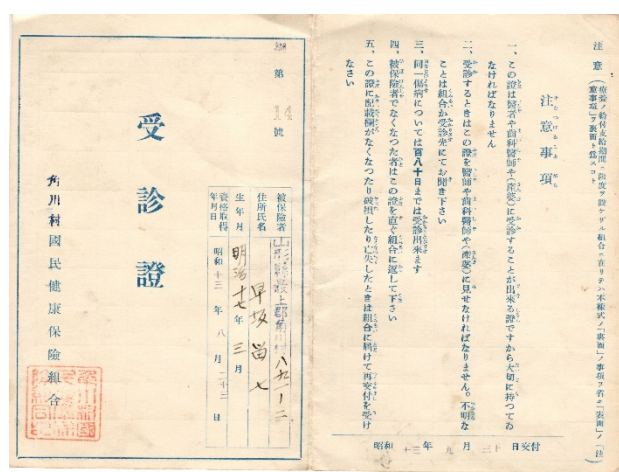 注意(療養ノ給付支給期間ノ限度ヲ設ケザル組合ニ在リテハ本様式ノ「裏面」ノ事項ヲ省キ「表面」ノ「注意事項」ヲ裏面ト爲スコト)
注意事項
一、この證は醫者や齒科醫師や(産婆)に受診することが出來る證ですから大切に持つてゐなければなりません
二、受診するときはこの證を醫師や齒科醫師や(産婆)に見せなければなりません。不明なことは組合か受診先にてお聞き下さい
三、同一傷病については百八十日までは受診出來ます
四、被保險者でなくなつた者はこの證を直ぐ組合に返して下さい
五、この證に記載欄がなくなつたり破損したり亡失したときは組合に屆けて再交付を受けなさい
昭和十三年九月三十日交付
第 34 號
受診證
被保險者
住所氏名
山形縣最上郡角川村八九一ノ二
早坂留七
生年月
明治十七年三月
資格取得
年月日
昭和十三年八月二十三日
角川村國民健康保險組合